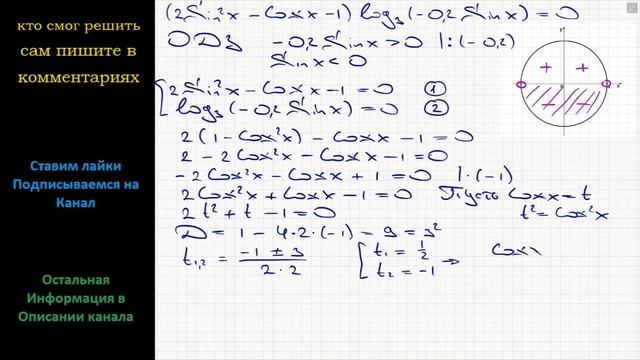 кто смог решить
сам пишите в
комментариях
Ставим лайки
Подписываемся на
Канал
Остальная
Информация в
Описании канала
(2Sin²x - Cosx - 1) log₃(-0,2Sinx) = 0
ОДЗ -0,2Sinx > 0 |:(-0,2)
Sinx < 0
[2Sin²x - Cosx - 1 = 0 ①
[log₃(-0,2Sinx) = 0 ②
2(1 - Cos²x) - Cosx - 1 = 0
2 - 2Cos²x - Cosx - 1 = 0
-2Cos²x - Cosx + 1 = 0 |·(-1)
2Cos²x + Cosx - 1 = 0 Пусть Cosx = t
2t² + t - 1 = 0 t² = Cos²x
D = 1 - 4·2·(-1) - 9 = 3²
t₁,₂ = (-1 ± 3)/(2·2) [t₁ = 1/2 Cosx
[t₂ = -1 →
+ +